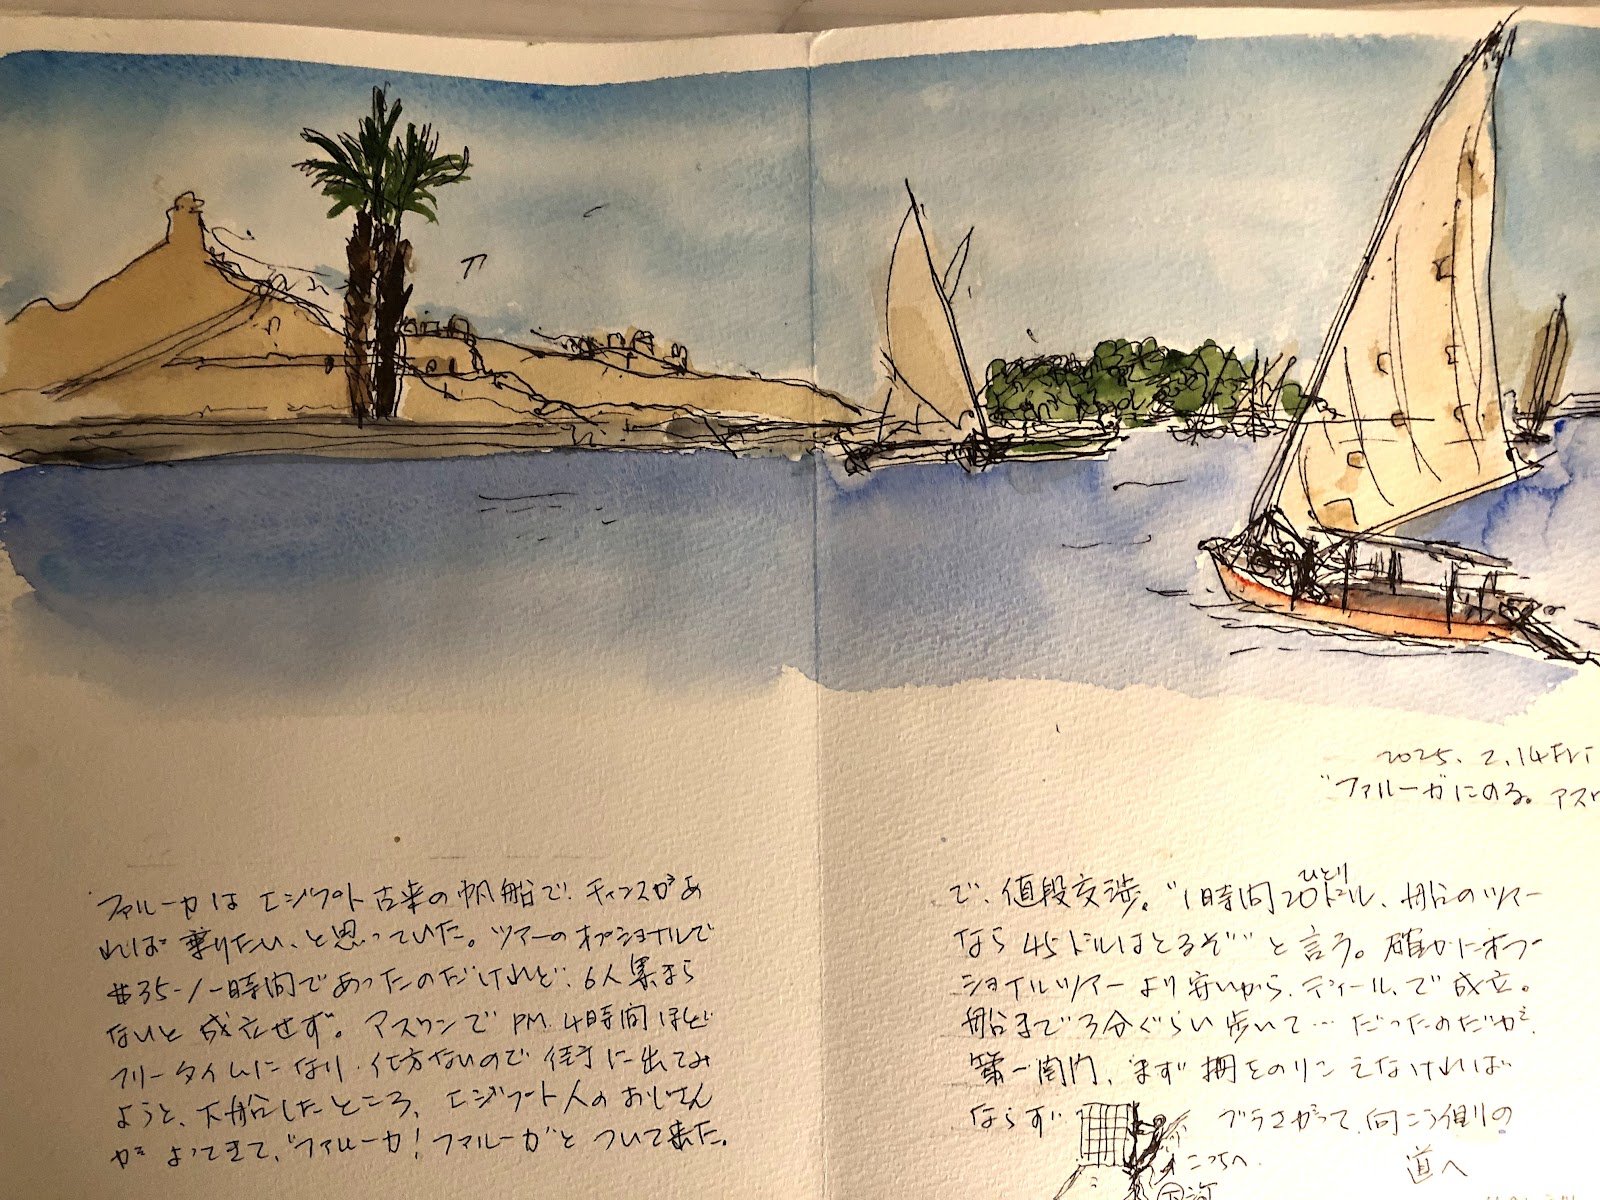 2025.2.14Fri
"ファルーカにのる。アスワ
ファルーカはエジプト古来の帆船で、チャンスがあ
れば乗りたい、と思っていた。ツアーのオプショナルで
$35-/一時間であったのだけれど、6人集まら
ないと成立せず。アスワンでPM.4時間ほど
フリータイムになり、仕方ないので街に出てみ
ようと、下船したところ、エジプト人のおじさん
がよってきて、"ファルーカ!ファルーカ"とついて来た。
で、値段交渉。"1時間20ドル、船のツアー
ひとり
なら45ドルはとるぞ"と言う。確かにオプー
ショナルツアーより安いから、ディール、で成立。
船まで3分ぐらい歩いて…だったのだが、
第一関門、まず柵をのりこえなければ
ならず
ブラさがって、向こう側の
道へ
こっちへ